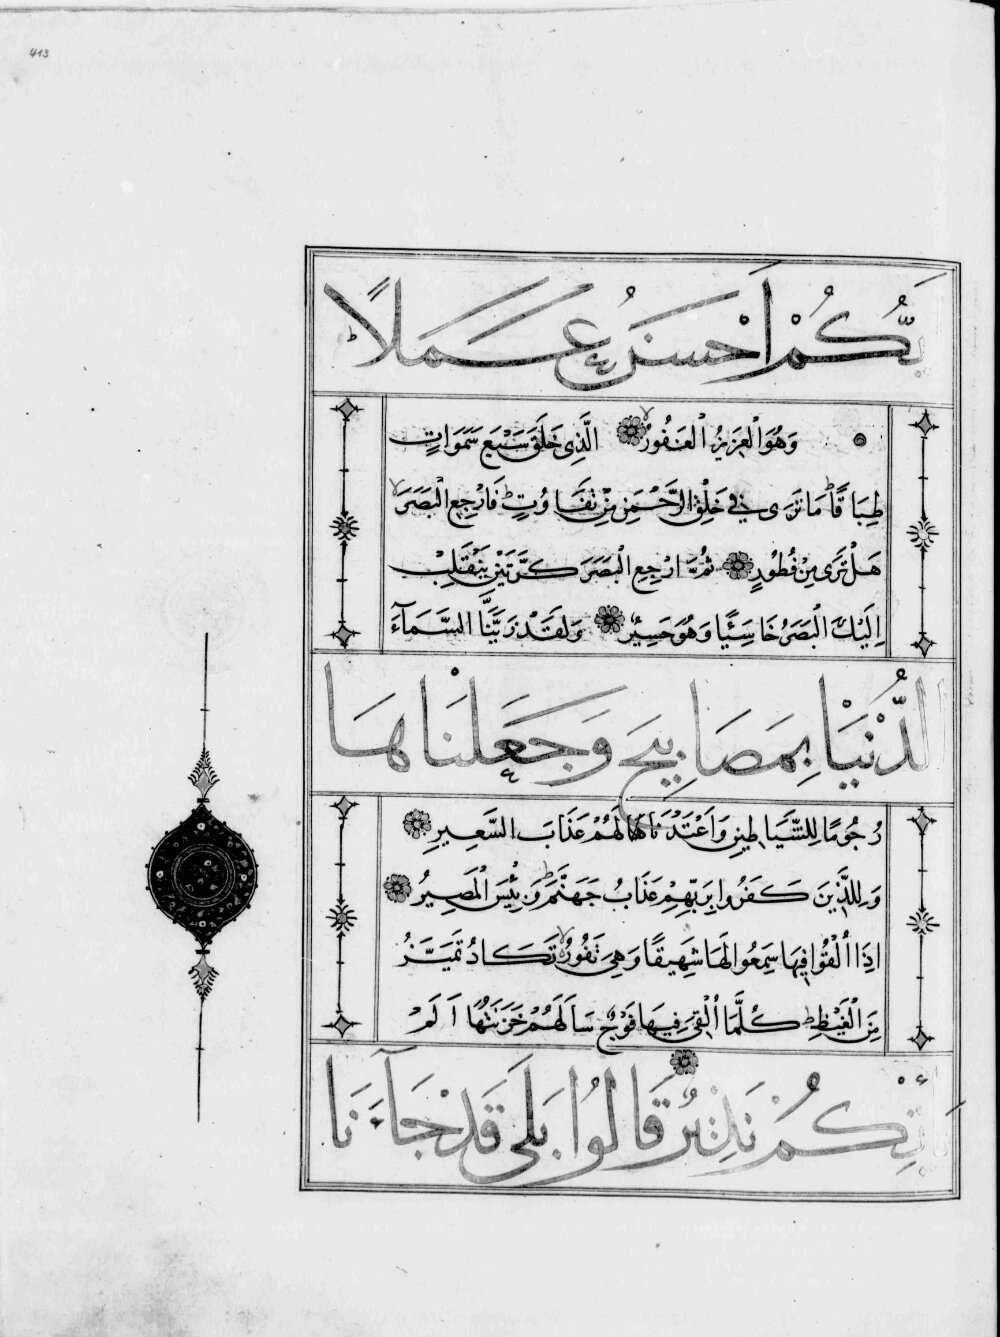 413
بُّكُمْ اَحْسَنُ عَمَلاً
وَهُوَ الْعَزِيزُ الْغَفُورُ الَّذِى خَلَقَ سَبْعَ سَمَوَاتٍ
طِبَاقًا مَا تَرَى فِى خَلْقِ الرَّحْمَنِ مِنْ تَفَاوُتٍ فَارْجِعِ الْبَصَرَ
هَلْ تَرَى مِنْ فُطُورٍ ثُمَّ ارْجِعِ الْبَصَرَ كَرَّتَيْنِ يَنْقَلِبْ
اِلَيْكَ الْبَصَرُ خَاسِئًا وَهُوَ حَسِيرٌ وَلَقَدْ زَيَّنَّا السَّمَآءَ
الدُّنْيَا بِمَصَابِيحَ وَجَعَلْنَاهَا
رُجُومًا لِلشَّيَاطِينِ وَاَعْتَدْنَا لَهُمْ عَذَابَ السَّعِيرِ
وَلِلَّذِينَ كَفَرُوا بِرَبِّهِمْ عَذَابُ جَهَنَّمَ وَبِئْسَ الْمَصِيرُ
اِذَا اُلْقُوا فِيهَا سَمِعُوا لَهَا شَهِيقًا وَهِىَ تَفُورُ تَكَادُ تَمَيَّزُ
مِنَ الْغَيْظِ كُلَّمَا اُلْقِىَ فِيهَا فَوْجٌ سَاَلَهُمْ خَزَنَتُهَا اَلَمْ
يَاْتِكُمْ نَذِيرٌ قَالُوا بَلَى قَدْ جَآءَنَا